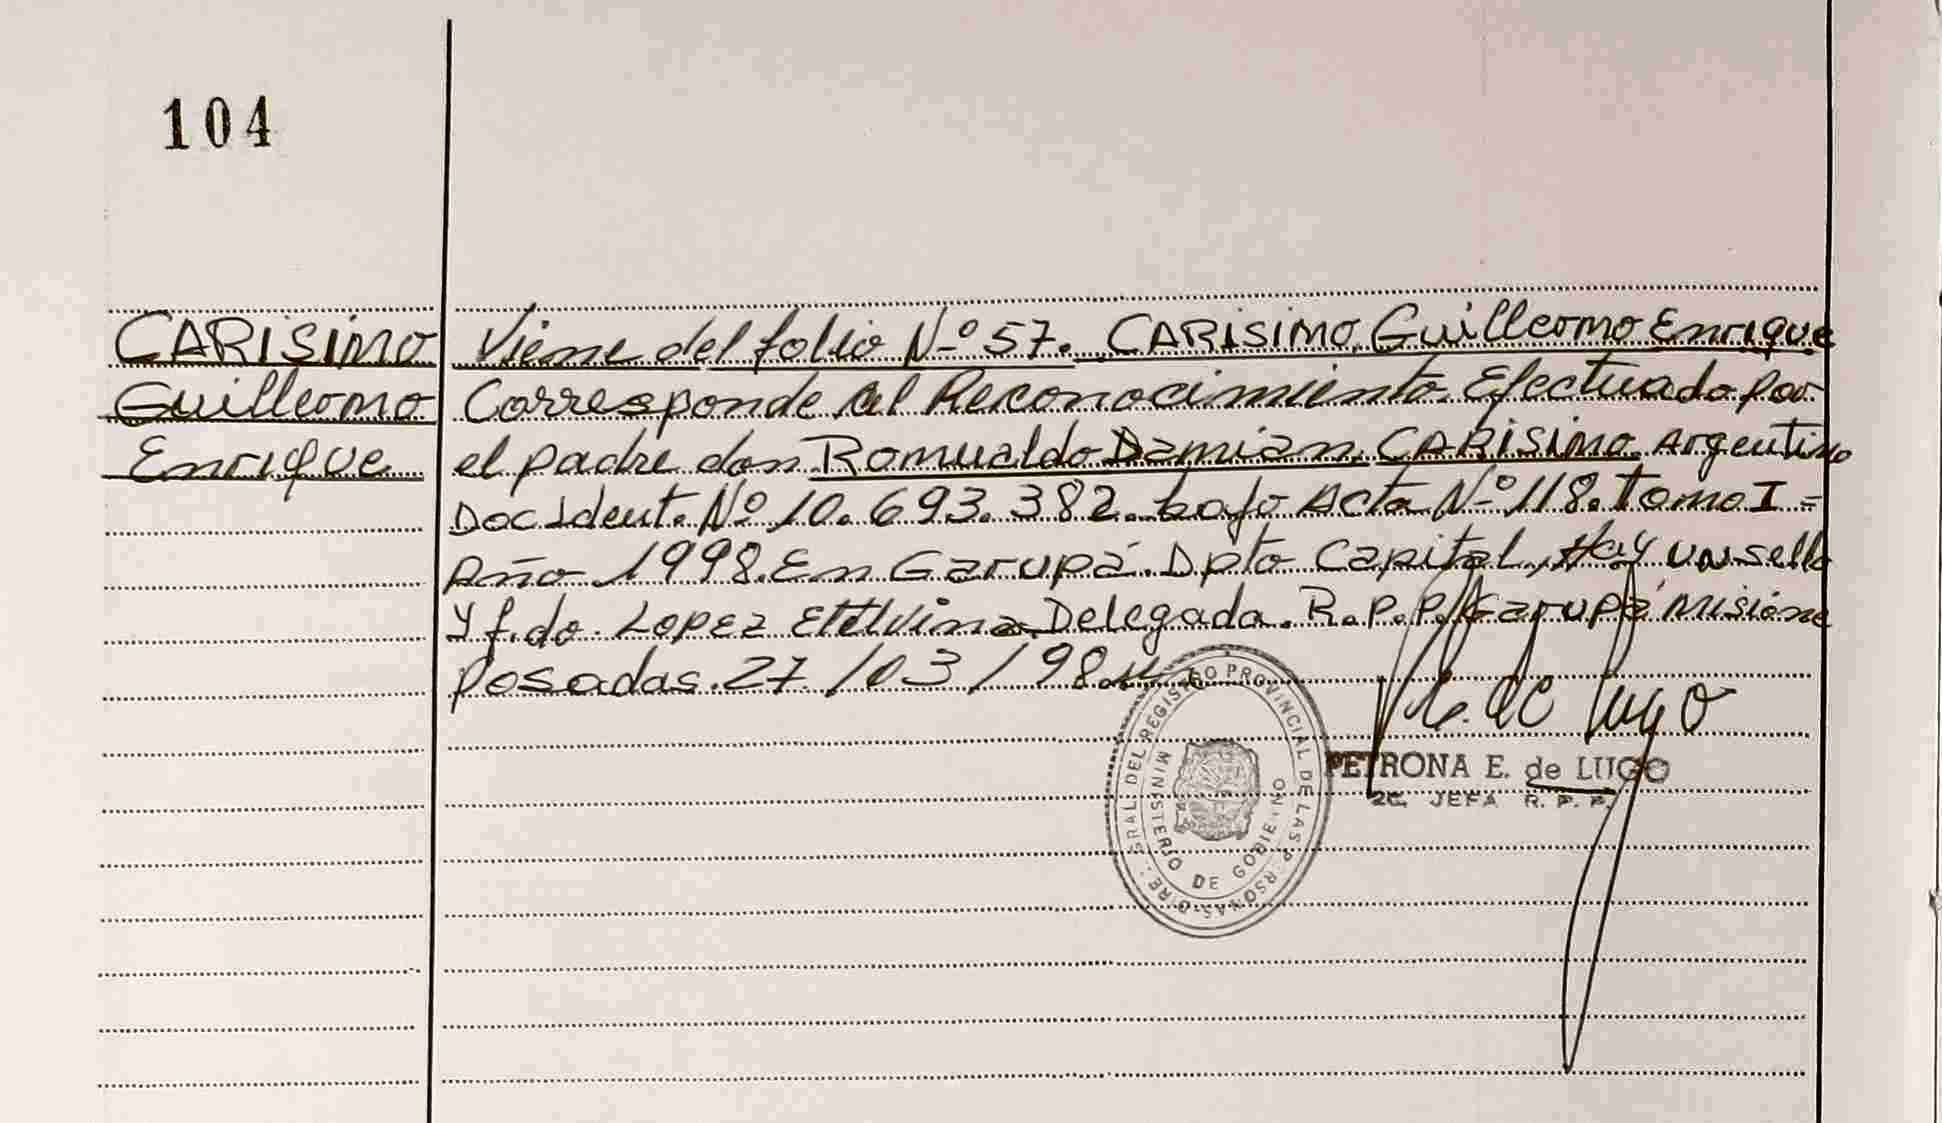 104
CARISIMO
Guillermo
Enrique
Viene del folio Nº 57. CARISIMO, Guillermo Enrique
Corresponde al Reconocimiento Efectuado por
el padre don Romualdo Damian CARISIMO. Argentino
Doc Ident. Nº 10.693.382. bajo Acta Nº 118. Tomo I =
Año 1998. En Garupá. Dpto Capital, Hay un sello
Y f.do. Lopez Etelvina Delegada. R.P.P. Garupá Misione
Posadas. 27/03/98.
de Lugo
PETRONA E. de LUGO
2C. JEFA R. P. P.
DIREC. GRAL. DEL REGISTRO PROVINCIAL DE LAS PERSONAS
MINISTERIO DE GOBIERNO